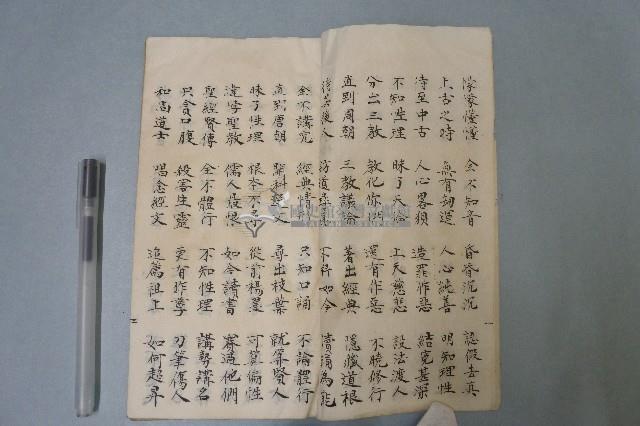 懞懞懂懂 全不知音 昏昏沉沉 認假去真
上古之時 無有劫運 人心純善 明知理性
待至中古 人心畧狽 造罪作惡 結冤甚深
不知性理 昧了天良 上天慈悲 設法渡人
分出三教 教化你們 還有作惡 不曉修行
直到周朝 三教議論 著出經典 隱藏道根
後人 訪道尋 不得如今 賣誦為能
全不講究 經典情 只知口誦 不論體行
直到唐朝 開科 文 尋出枝葉 就算賢人
昧了性理 根本不尋 從前楊墨 可算偏性
違字聖教 儒人 恨 如今讀書 賽過他們
聖經賢傳 全不體行 不知性理 講勢講名
只貪口腹 殺害生靈 更有作孽 刀筆傷人
和尚道士 唱念經文 追薦祖上 如何超昇